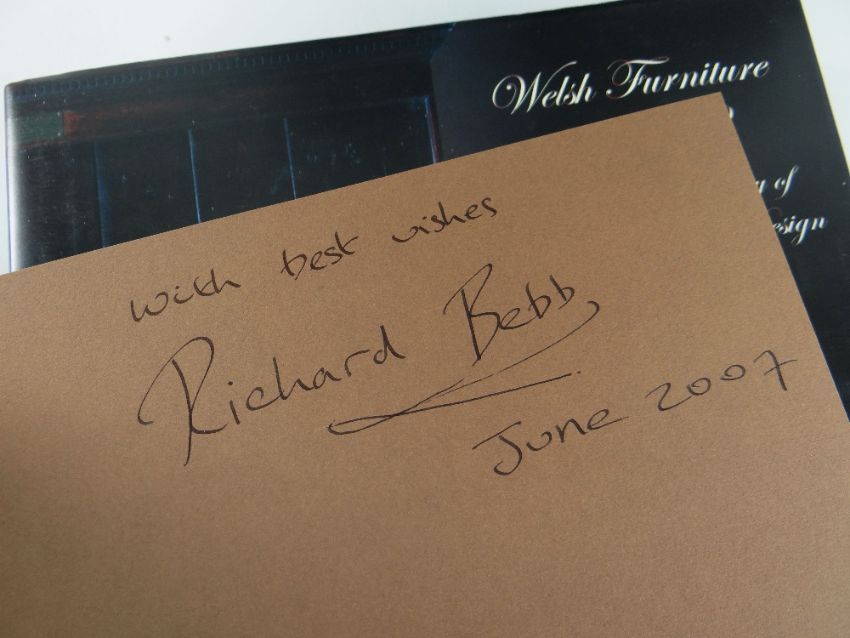 Welsh Furniture
of
With best wishes
Richard Bebb
June 2007